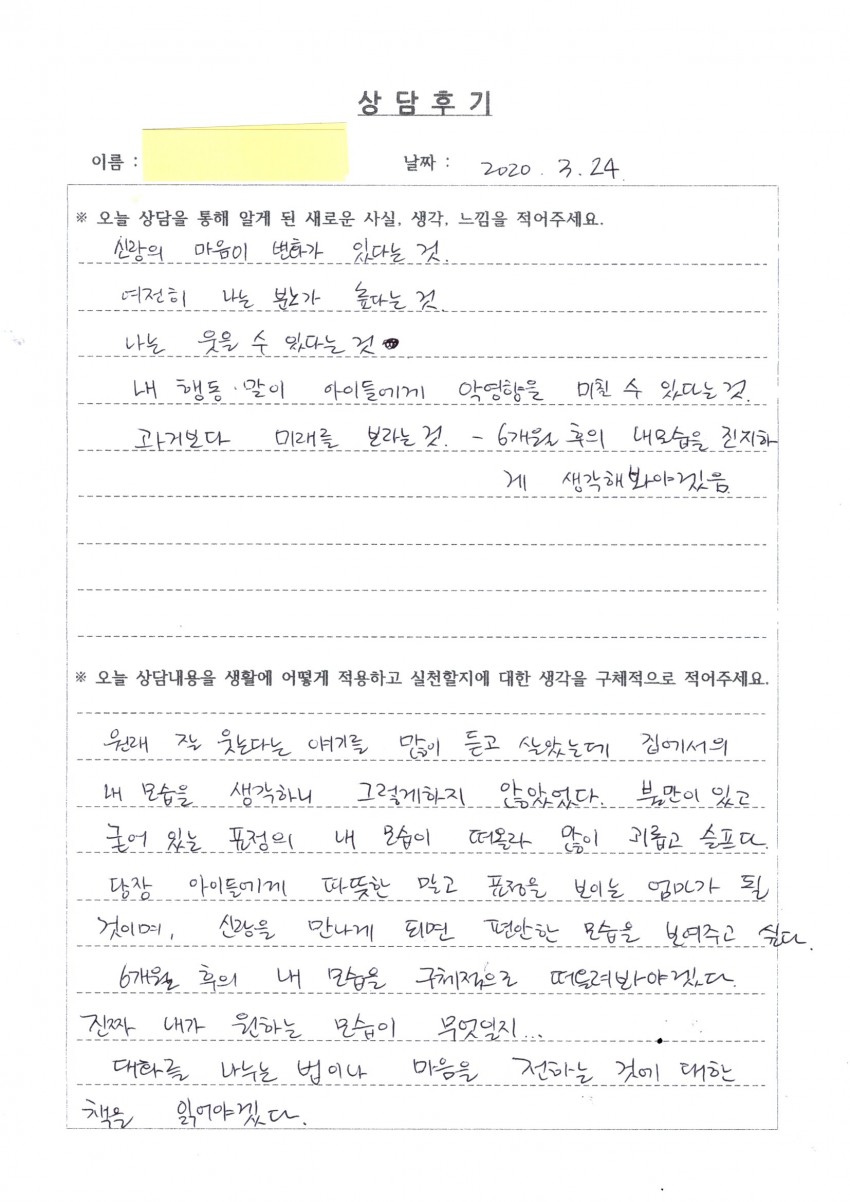 상담후기
이름 :
날짜 : 2020. 3. 24.
※ 오늘 상담을 통해 알게 된 새로운 사실, 생각, 느낌을 적어주세요.
신랑의 마음이 변화가 있다는 것.
여전히 나는 분노가 높다는 것.
나는 웃을 수 있다는 것
내 행동·말이 아이들에게 악영향을 미칠 수 있다는 것.
과거보다 미래를 보라는 것. - 6개월 후의 내모습을 진지하
게 생각해봐야겠음.
※ 오늘 상담내용을 생활에 어떻게 적용하고 실천할지에 대한 생각을 구체적으로 적어주세요.
원래 잘 웃는다는 얘기를 많이 듣고 살았는데 집에서의
내 모습을 생각하니 그렇게하지 않았었다. 불만이 있고
굳어 있는 표정의 내 모습이 떠올라 많이 괴롭고 슬프다.
당장 아이들에게 따뜻한 말고 표정을 보이는 엄마가 될
것이며, 신랑을 만나게 되면 편안한 모습을 보여주고 싶다.
6개월 후의 내 모습을 구체적으로 떠올려봐야겠다.
진짜 내가 원하는 모습이 무엇일지...
대화를 나누는 법이나 마음을 전하는 것에 대한
책을 읽어야겠다.